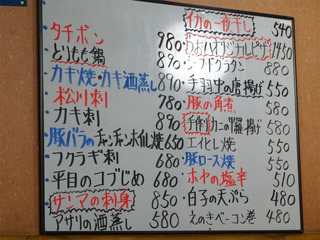 タチポン 980
とりもも鍋 890
カキ焼・カキ酒蒸し 890
松川刺 780
カキ刺 890
豚バラのチャンチャンホイル焼 650
フクラギ刺 650
平目のコブじめ 680
サンマの刺身 850
アサリの酒蒸し 580
イカの一夜干し 540
おおハオリジナルピザ 1450
シーフドグラタン 680
手羽中の唐揚げ 550
豚の角煮 580
手作りカニの爪揚げ 580
エイヒレ焼 550
豚ロース焼 550
ホヤの塩辛 510
白子の天ぷら 480
えのきベーコン巻 480